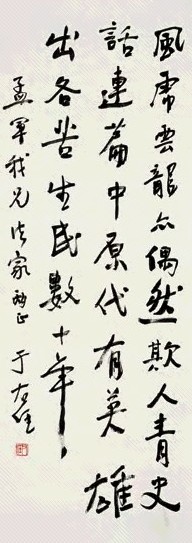 風虎雲龍亦偶然欺人青史
話連篇中原代有英雄
出各苦生民數十年
孟軍我兄法家兩正
于右任